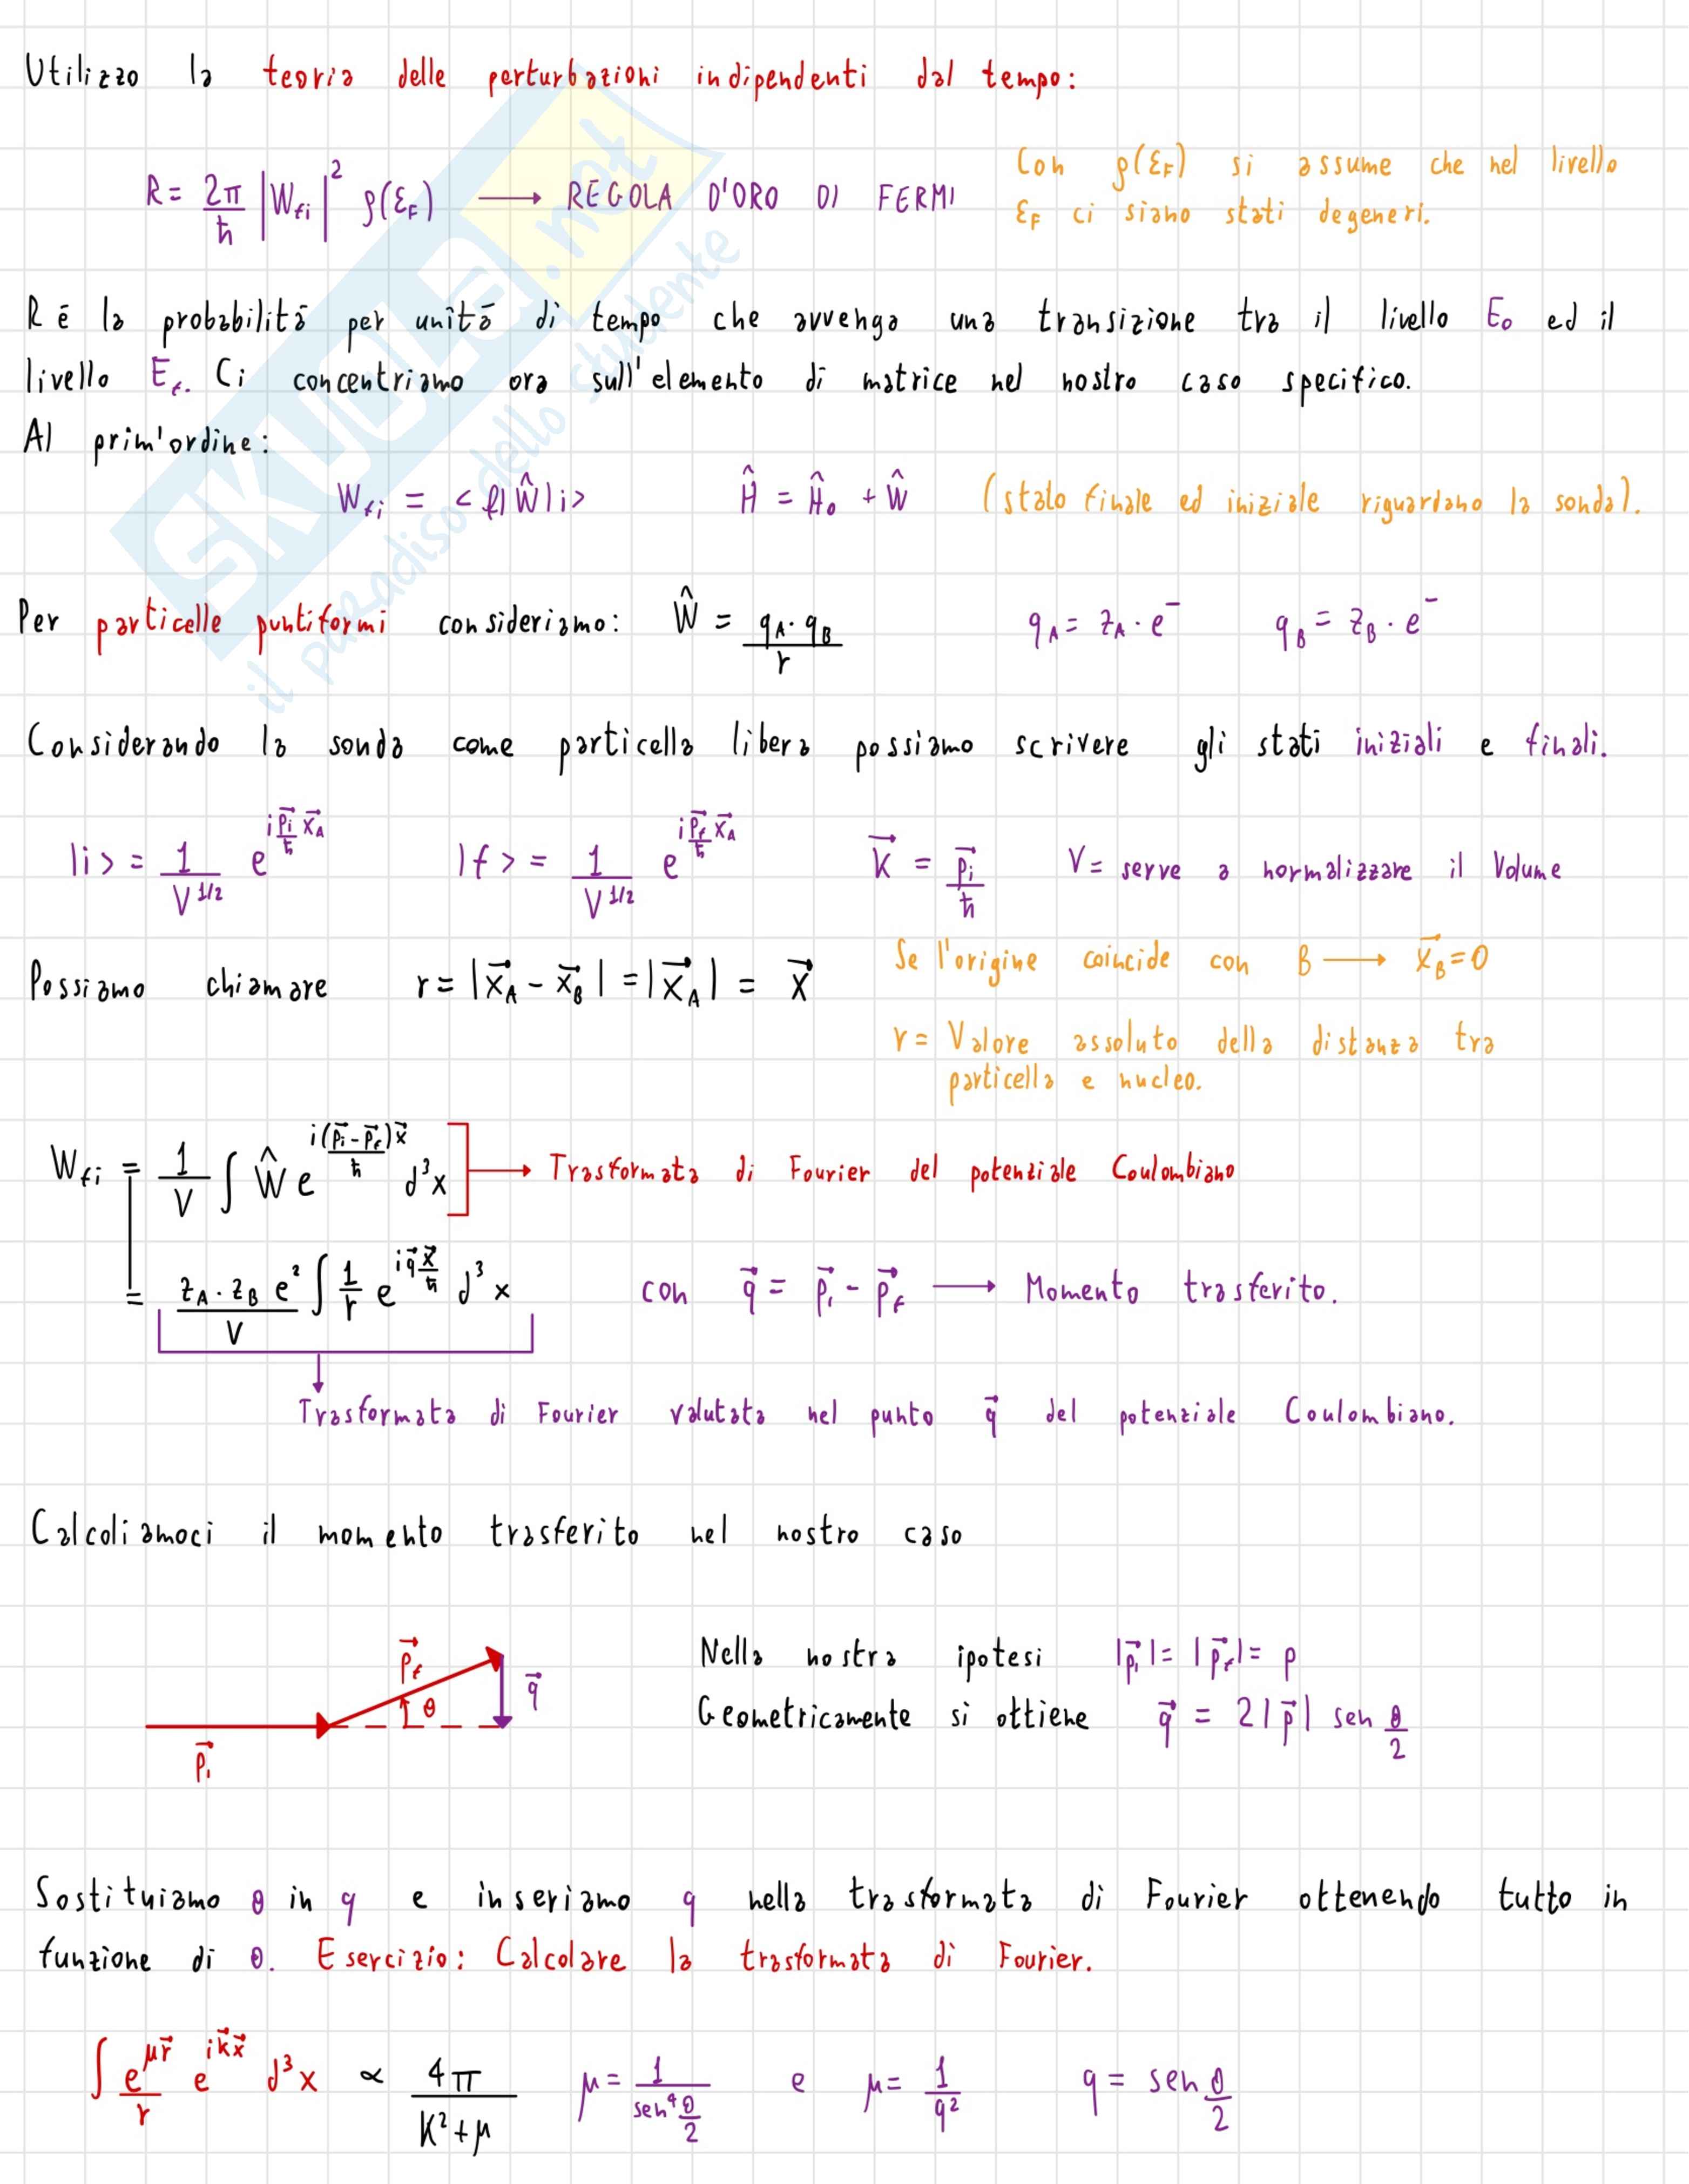 Utilizzo la teoria delle perturbazioni indipendenti dal tempo:
R = 2π/ħ |Wfi|² ρ(εF) → REGOLA D'ORO DI FERMI
Con ρ(εF) si assume che nel livello
εF ci siano stati degeneri.
R è la probabilità per unità di tempo che avvenga una transizione tra il livello E₀ ed il
livello Ef. Ci concentriamo ora sull'elemento di matrice nel nostro caso specifico.
Al prim'ordine:
Wfi = <f|Ŵ|i> Ĥ = Ĥ₀ + Ŵ (stato finale ed iniziale riguardano la sonda).
Per particelle puntiformi consideriamo: Ŵ = qA·qB/r qA = zA·e⁻ qB = zB·e⁻
Considerando la sonda come particella libera possiamo scrivere gli stati iniziali e finali.
|i> = 1/V^1/2 e^(i p⃗i/ħ x⃗A) |f> = 1/V^1/2 e^(i p⃗f/ħ x⃗A) k⃗ = p⃗i/ħ V = serve a normalizzare il Volume
Possiamo chiamare r = |x⃗A - x⃗B| = |x⃗A| = x⃗
Se l'origine coincide con B → x⃗B = 0
r = Valore assoluto della distanza tra
particella e nucleo.
Wfi = 1/V ∫ Ŵ e^(i(p⃗i - p⃗f)x⃗/ħ) d³x → Trasformata di Fourier del potenziale Coulombiano
= zA·zB e²/V ∫ 1/r e^(i q⃗ x⃗/ħ) d³x con q⃗ = p⃗i - p⃗f → Momento trasferito.
Trasformata di Fourier valutata nel punto q⃗ del potenziale Coulombiano.
Calcoliamoci il momento trasferito nel nostro caso
p⃗i p⃗f θ q⃗
Nella nostra ipotesi |p⃗i| = |p⃗f| = p
Geometricamente si ottiene q⃗ = 2|p⃗| sen θ/2
Sostituiamo θ in q e inseriamo q nella trasformata di Fourier ottenendo tutto in
funzione di θ. Esercizio: Calcolare la trasformata di Fourier.
∫ e^(μr⃗)/r e^(i k⃗x⃗) d³x ∝ 4π/(K²+μ) μ = 1/sen⁴ θ/2 e μ = 1/q² q = sen θ/2
SKUOLA.net
il paradiso dello studente